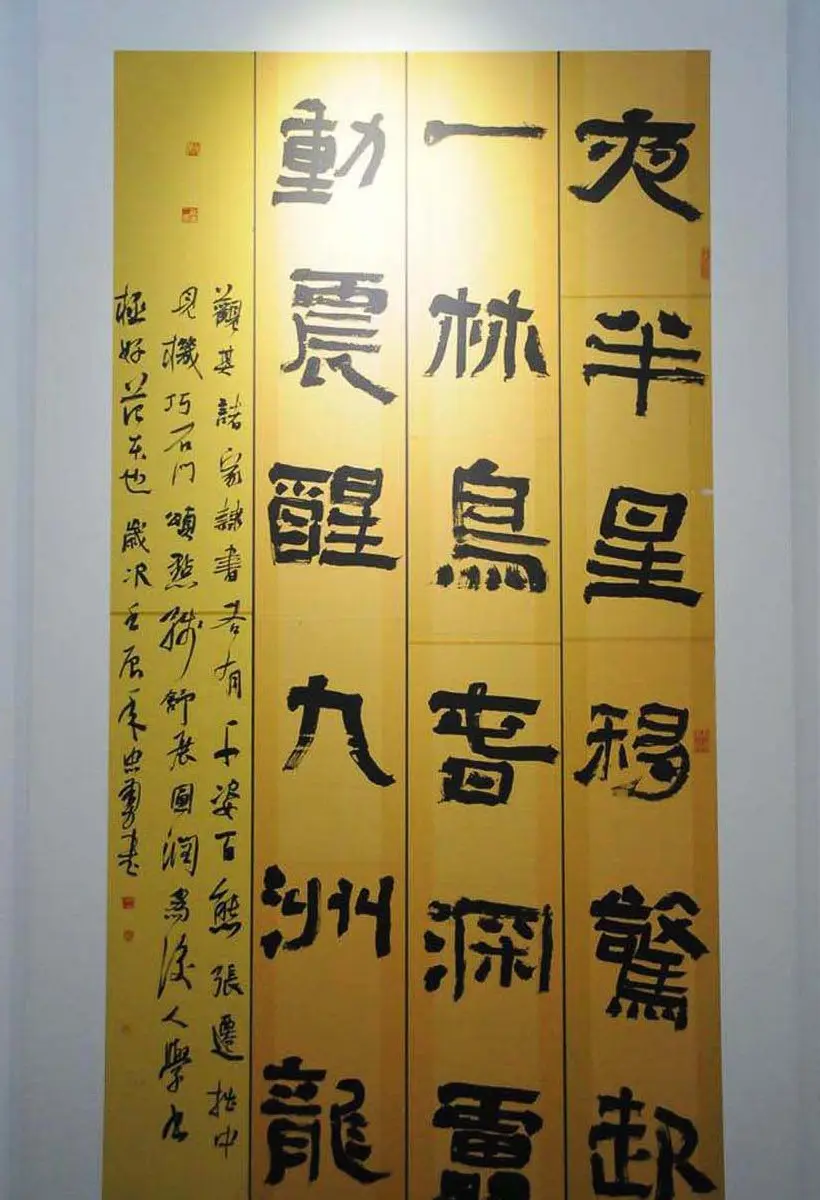 夜半星移驚起
一林鳥音深雷
動震醒九洲龍
觀其諸家隸書各有千姿百態張遷拙中
見機巧石門頌點線舒展圓潤為後人學書
極好范本也 歲次壬辰年忠勇書